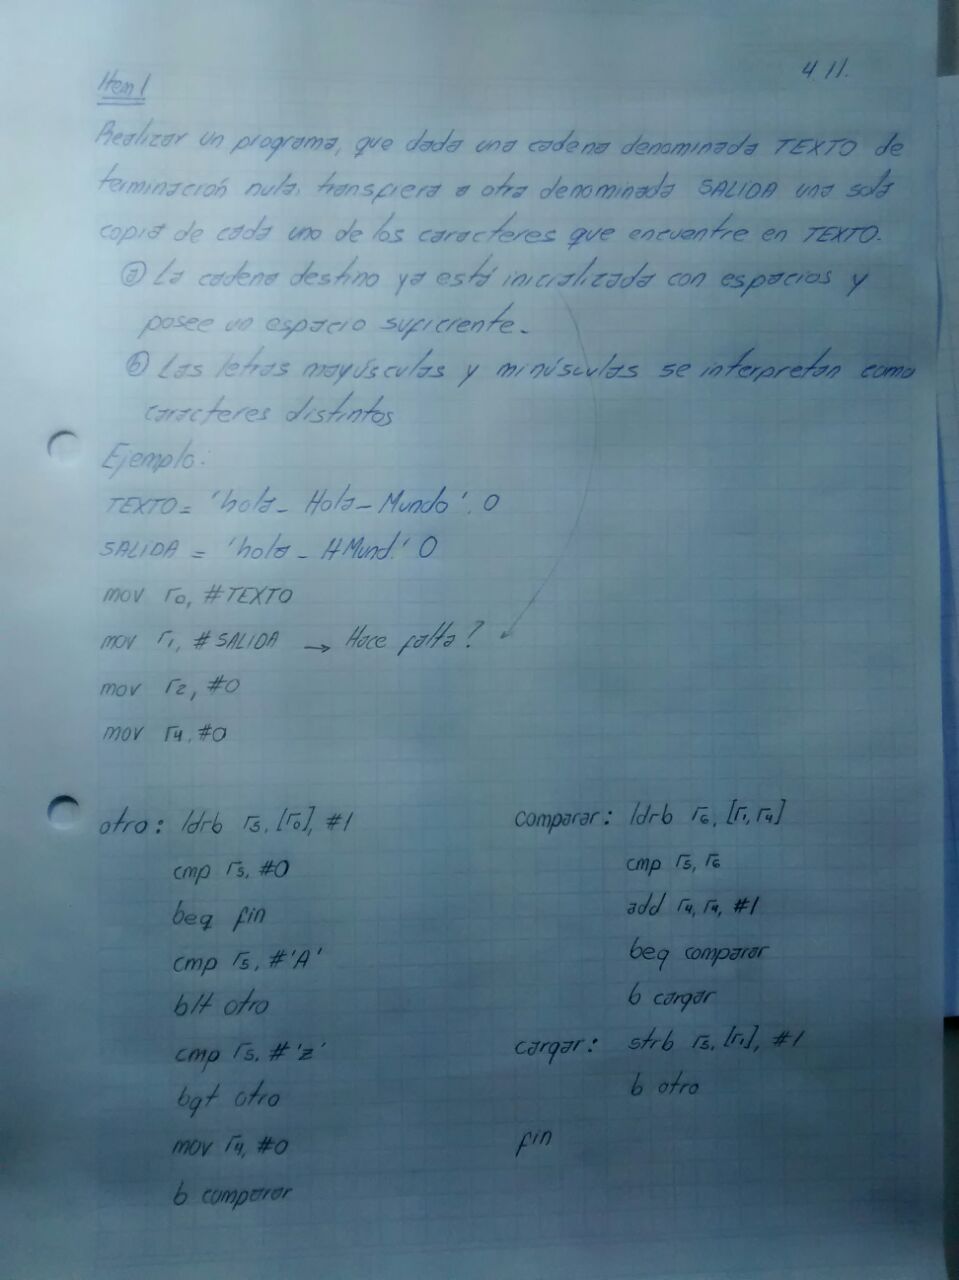 4 11.
Item 1
Realizar un programa, que dada una cadena denominada TEXTO de
terminación nula, transfiera a otra denominada SALIDA una sola
copia de cada uno de los caracteres que encuentre en TEXTO.
ⓐ La cadena destino ya está inicializada con espacios y
posee un espacio suficiente.
ⓑ Las letras mayúsculas y minúsculas se interpretan como
caracteres distintos
Ejemplo:
TEXTO = 'hola_ Hola_ Mundo', 0
SALIDA = 'hola_ HMund.' 0
mov r0, #TEXTO
mov r1, #SALIDA → Hace falta?
mov r2, #0
mov r4, #0
otro: ldrb r5, [r0], #1
cmp r5, #0
beq fin
cmp r5, #'A'
blt otro
cmp r5, #'z'
bgt otro
mov r4, #0
b comparar
comparar: ldrb r6, [r1, r4]
cmp r5, r6
add r4, r4, #1
beq comparar
b cargar
cargar: strb r5, [r1], #1
b otro
fin